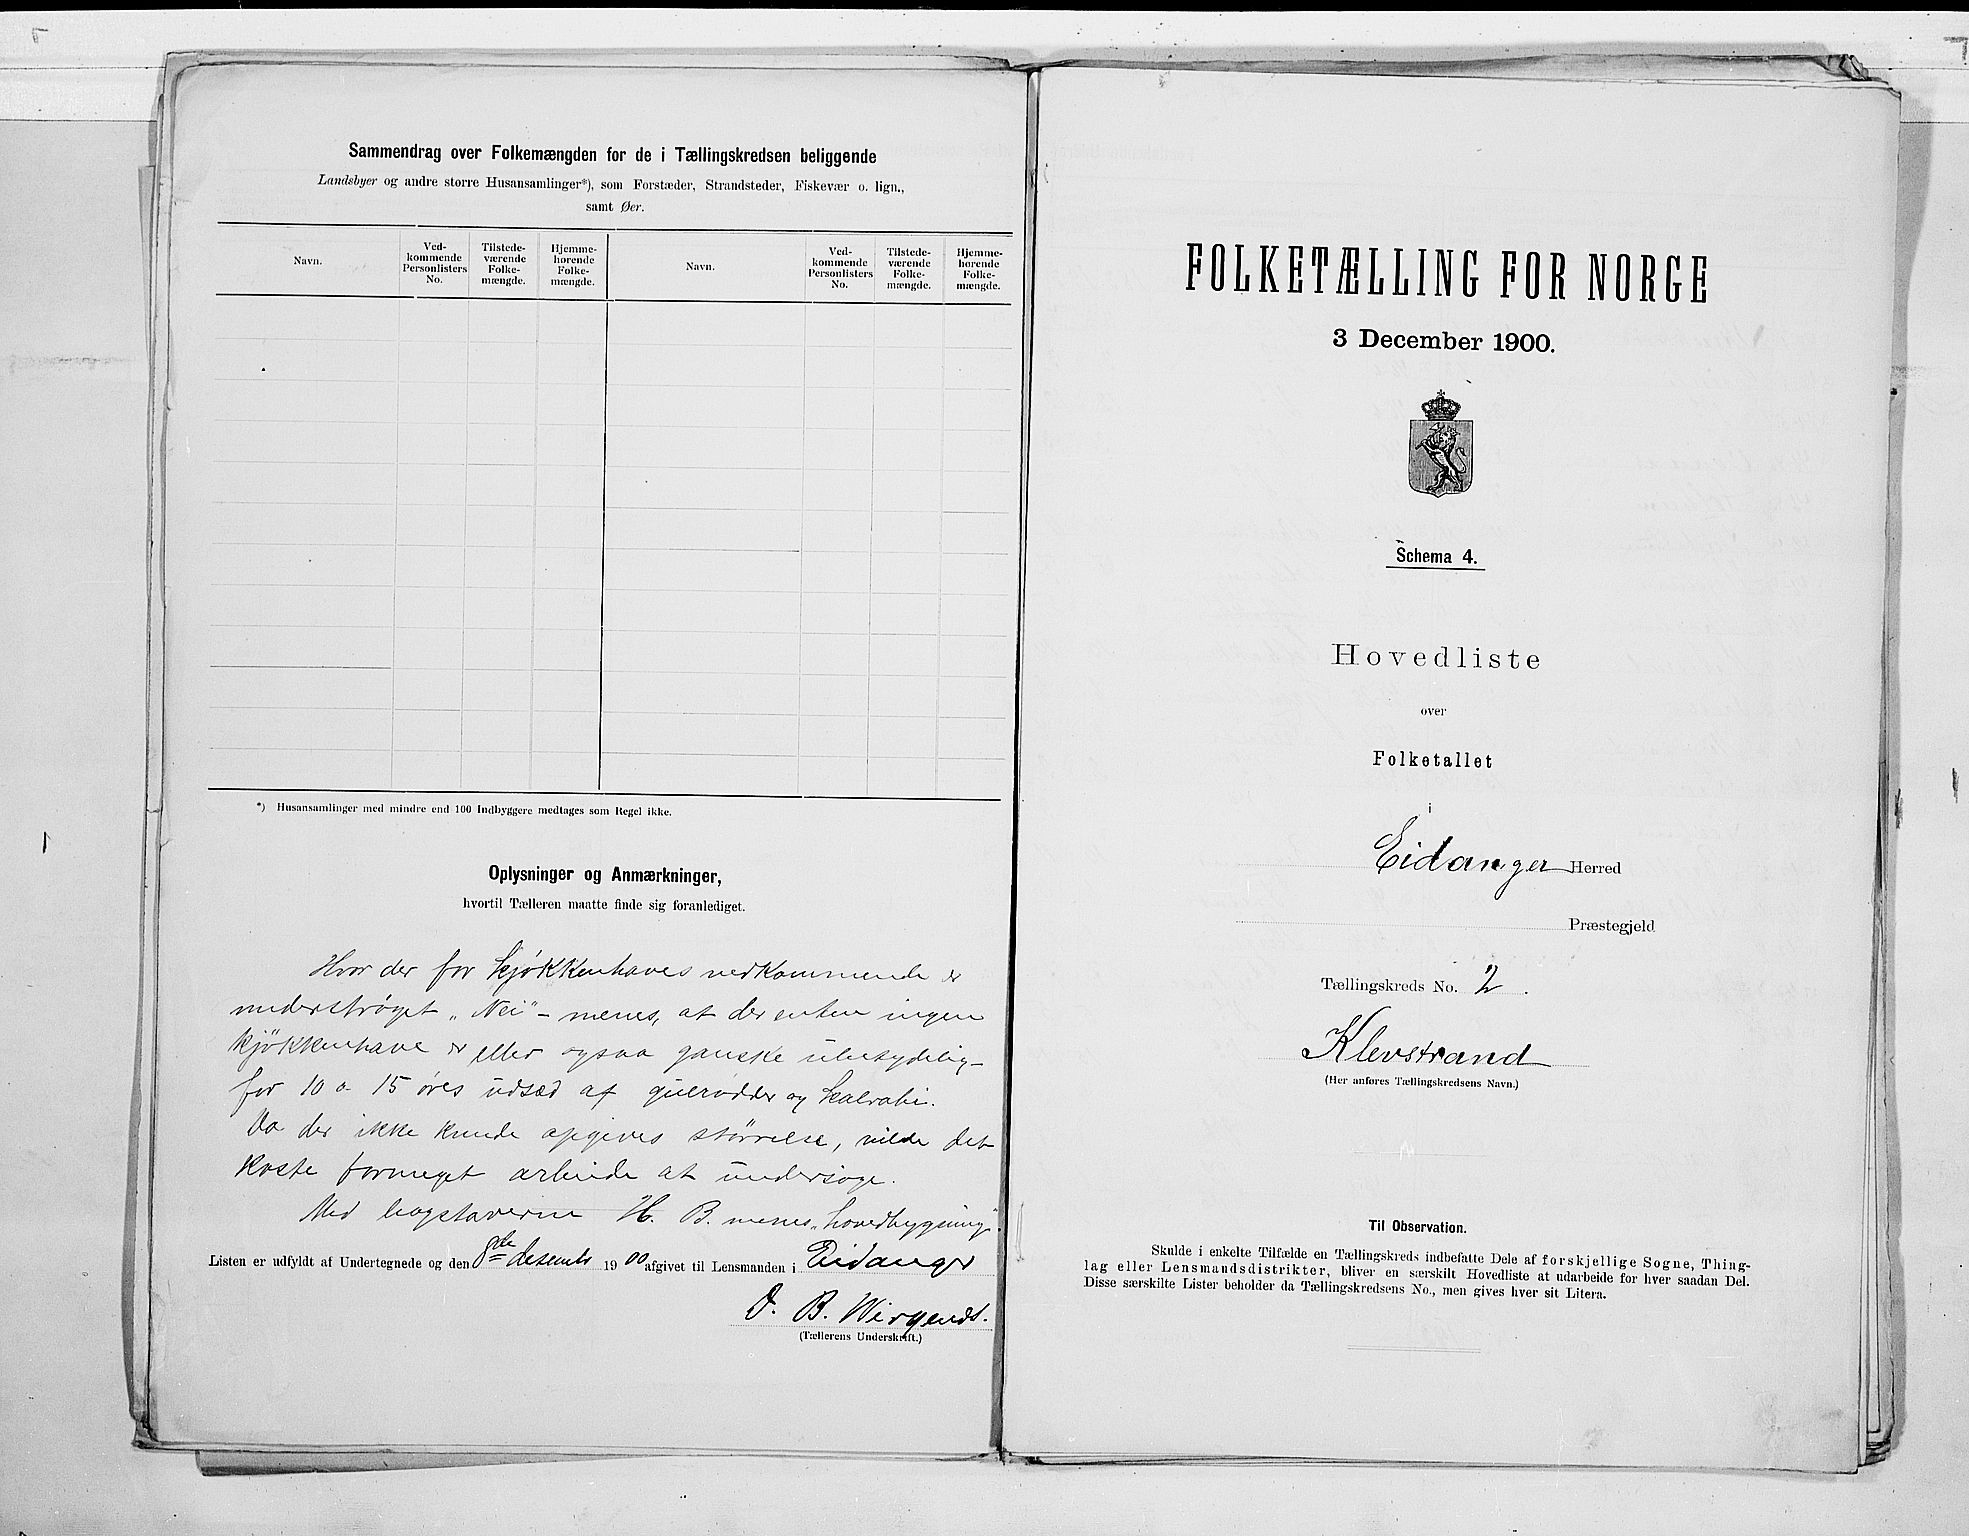 Sammendrag over Folkemængden for de i Tællingskredsen beliggende
Landsbyer og andre større Husansamlinger*), som Forstæder, Strandsteder, Fiskevær o. lign.,
samt Øer.
Navn.
Ved-
kommende
Personlisters
No.
Tilstede-
værende
Folke-
mængde.
Hjemme-
hørende
Folke-
mængde.
Navn.
Ved-
kommende
Personlisters
No.
Tilstede-
værende
Folke-
mængde.
Hjemme-
hørende
Folke-
mængde.
*) Husansamlinger med mindre end 100 Indbyggere medtages som Regel ikke.
Oplysninger og Anmærkninger,
hvortil Tælleren maatte finde sig foranlediget.
Hvor der for kjøkkenhaves vedkommende er
understrøget „Nei" - menes, at der enten ingen
kjøkkenhave er eller ogsaa ganske ubetydelig-
for 10 a 15 øres udsæd af gulerødder og kaalrabi.
Da der ikke kunde opgives størrelse, vilde det
koste formeget arbeide at undersøge.
Med bogstaverne H. B. menes „hovedbygning".
Listen er udfyldt af Undertegnede og den 8de desember 1900 afgivet til Lensmanden i Eidanger
B. Wirgends.
(Tællerens Underskrift.)
FOLKETÆLLING FOR NORGE
3 December 1900.
Schema 4.
Hovedliste
over
Folketallet
i
Eidanger Herred
Præstegjeld
Tællingskreds No. 2.
Klevstrand
(Her anføres Tællingskredsens Navn.)
Til Observation.
Skulde i enkelte Tilfælde en Tællingskreds indbefatte Dele af forskjellige Sogne, Thing-
lag eller Lensmandsdistrikter, bliver en særskilt Hovedliste at udarbeide for hver saadan Del.
Disse særskilte Lister beholder da Tællingskredsens No., men gives hver sit Litera.